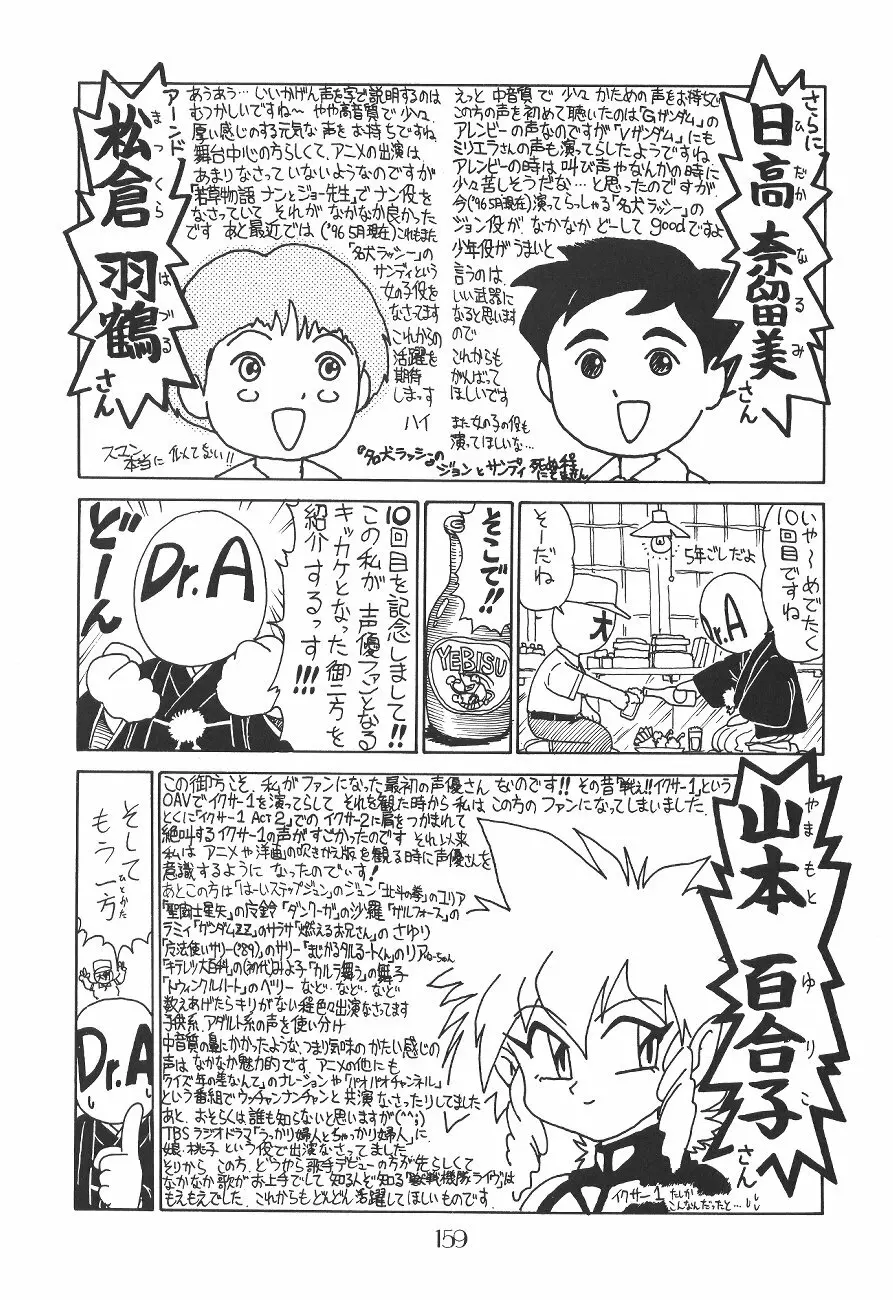 さらに
日高 奈留美さん
ひだか なるみ
えっと 中音質で 少々 かための 声をお持ちで
この方の声を初めて聴いたのは「Gガンダム」の
アレンビーの声なのですが「Vガンダム」にも
ミリエラさんの声も演ってらしたようですね
アレンビーの時は 叫び声やなんかの時に
少々苦しそうだな…と思ったのですが
今('96 5月現在)演ってらっしゃる「名犬ラッシー」の
ジョン役が なかなか どーして goodですよ
少年役がうまいと
言うのは
いい武器に
なると思います
ので
これからも
がんばって
ほしいです
また女の子の役も
演ってほしいな…
アーンド
松倉 羽鶴さん
まつくら はづる
あうあう…いいかげん声を字で説明するのは
むつかしいですね〜 やや高音質で少々
厚い感じのする元気な 声を お持ちですね
舞台中心の方らしくて、アニメの出演は
あまりなさって いないようなのですが
「若草物語 ナンとジョー先生」で ナン役を
なさっていて それが なかなか良かった
です あと最近では('96 5月現在)これもまた
「名犬ラッシー」の
サンディという
女の子役を
なさってます
これからの
活躍を
期待
しまっす
ハイ
スマン
本当に 似てない!!
「名犬ラッシー」の
ジョンとサンディ
いや〜めでたく
10回目ですね
5年ごしだよ
そーだね
オ
Dr.A
そこで!!
YEBISU
10回目を記念しまして!!
この私が 声優ファンとなる
キッカケとなった御二方を
紹介するっす!!!
Dr.A
どーん
山本 百合子さん
やまもと ゆりこ
この御方こそ、私が ファンになった最初の声優さん なのです!! その昔「戦え!!イクサー1」という
OAVでイクサー1を演ってらして それを観た時から 私は この方の ファンになってしまいました
とくに「イクサー1 Act2」での イクサー2に肩をつかまれて
絶叫するイクサー1の声がすごかったのです それ以来
私は アニメや洋画の吹きかえ版を観る時に声優さんを
意識するように なったのでぃす!
あとこの方は「はーいステップジュン」のジュン「北斗の拳」のユリア
「聖闘士星矢」の魔鈴「ダンクーガ」の沙羅「ガルフォース」の
ラミィ「ガンダムZZ」のサラサ「燃えるお兄さん」の さゆり
「魔法使いサリー('89)」のサリー「まじかるタルるートくん」のリアちゃん
「キテレツ大百科」の(初代)みよ子「カルラ舞う」の 舞子
「トウィンクルハート」の ベリー など…など…など
数えあげたらキリがない程色々出演なさってます
子供系、アダルト系の声を使い分け
中音質の鼻にかかったような、つまり気味の かたい感じの
声は なかなか魅力的です アニメの他にも
クイズ「年の差なんて」のナレーションや「パオパオチャンネル」
という番組でウッチャンナンチャンと 共演 なさったりしてました
あと、おそらくは誰も知らないと思いますが(^^;)
TBSラジオドラマ「うっかり婦人とちゃっかり婦人」に
娘、桃子 という役で出演なさってました
それから この方、どうやら歌手デビューの方が先らしくて
なかなか歌が お上手でして 知る人ぞ知る「獣戦機隊ライヴ」は
もえもえでした。これからも どんどん 活躍してほしいものです。
イクサー1 たしか
こんなんだったと…
そして
もう一方
ひとかた
Dr.A
159